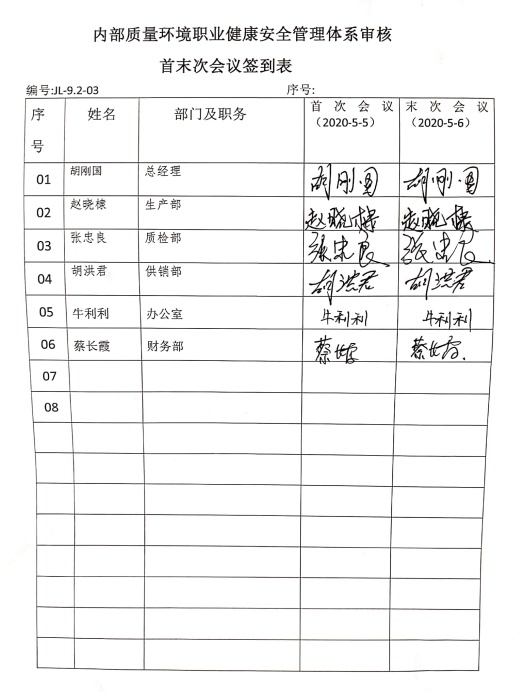 内部质量环境职业健康安全管理体系审核
首末次会议签到表
编号:JL-9.2-03 序号:
序号 姓名 部门及职务 首次会议（2020-5-5） 末次会议（2020-5-6）
01 胡刚国 总经理 胡刚国 胡刚国
02 赵晓棣 生产部 赵晓棣 赵晓棣
03 张忠良 质检部 张忠良 张忠良
04 胡洪君 供销部 胡洪君 胡洪君
05 牛利利 办公室 牛利利 牛利利
06 蔡长霞 财务部 蔡长霞 蔡长霞
07
08